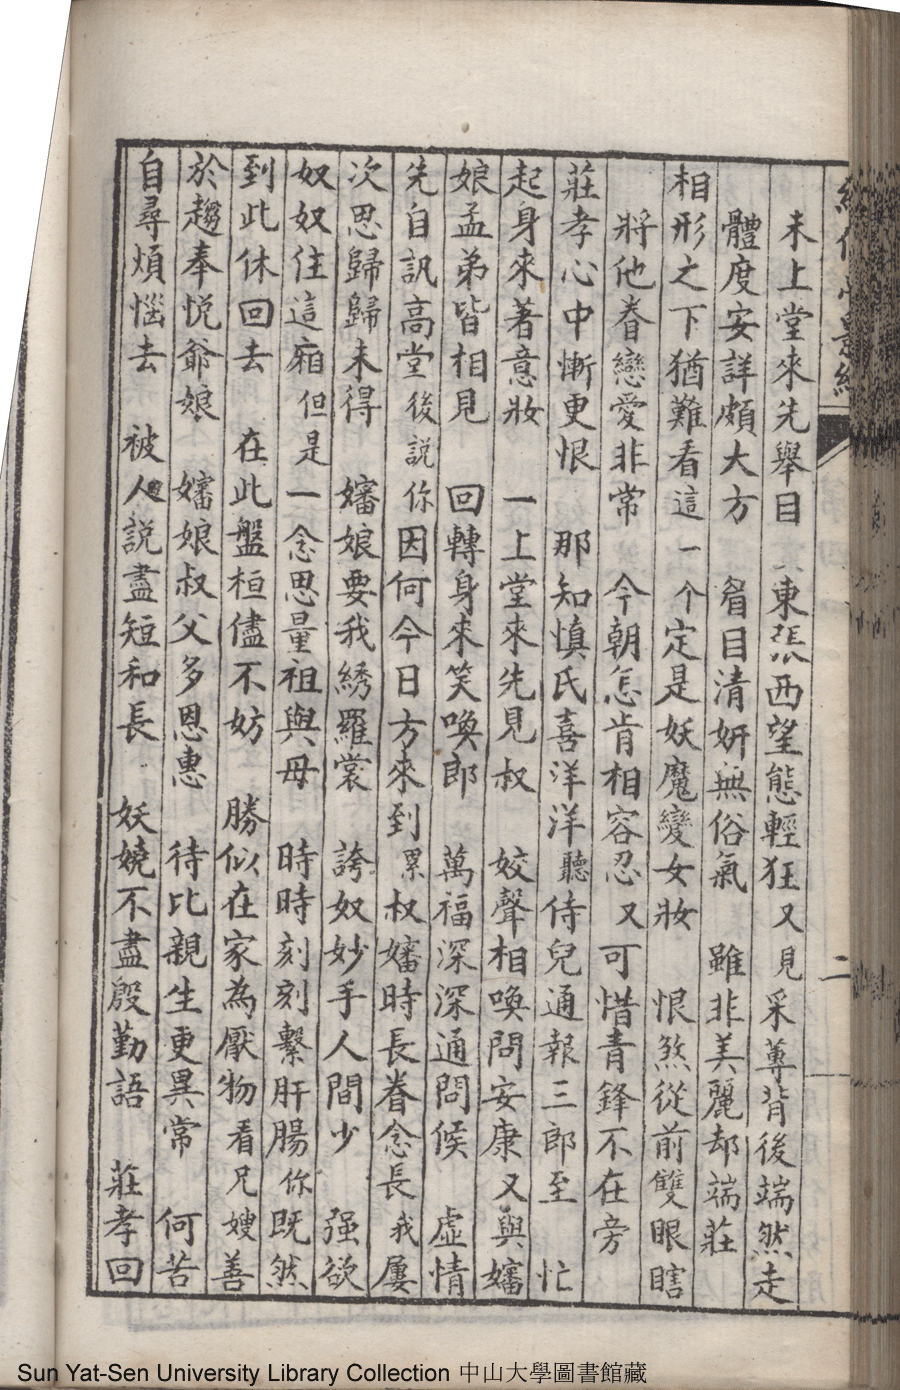 未上堂來先舉目 東張西望態輕狂又見采蓴背後端然走
體度安詳頗大方 眉目清妍無俗氣 雖非美麗却端莊
相形之下猶難看這一个定是妖魔變女妝 恨煞從前雙眼瞎
將他眷戀愛非常 今朝怎肯相容忍又可惜青鋒不在旁
莊孝心中慚更恨 那知慎氏喜洋洋聽侍兒通報三郎至 忙
起身來著意妝 一上堂來先見叔 姣聲相喚問安康又與嬸
娘孟弟皆相見 回轉身來笑喚郎 萬福深深通問候 虛情
先自訊高堂後説你因何今日方來到累叔嬸時長眷念長我屢
次思歸歸未得 嬸娘要我綉羅裳 誇奴妙手人間少 强欲
奴奴住這廂但是一念思量祖與母 時時刻刻繫肝腸你既然
到此休回去 在此盤桓儘不妨 勝似在家為厭物看兄嫂善
於趨奉悦爺娘 嬸娘叔父多恩惠 待比親生更異常 何苦
自尋煩惱去 被人說盡短和長 妖嬈不盡殷勤語 莊孝回
二
Sun Yat-Sen University Library Collection 中山大學圖書館藏